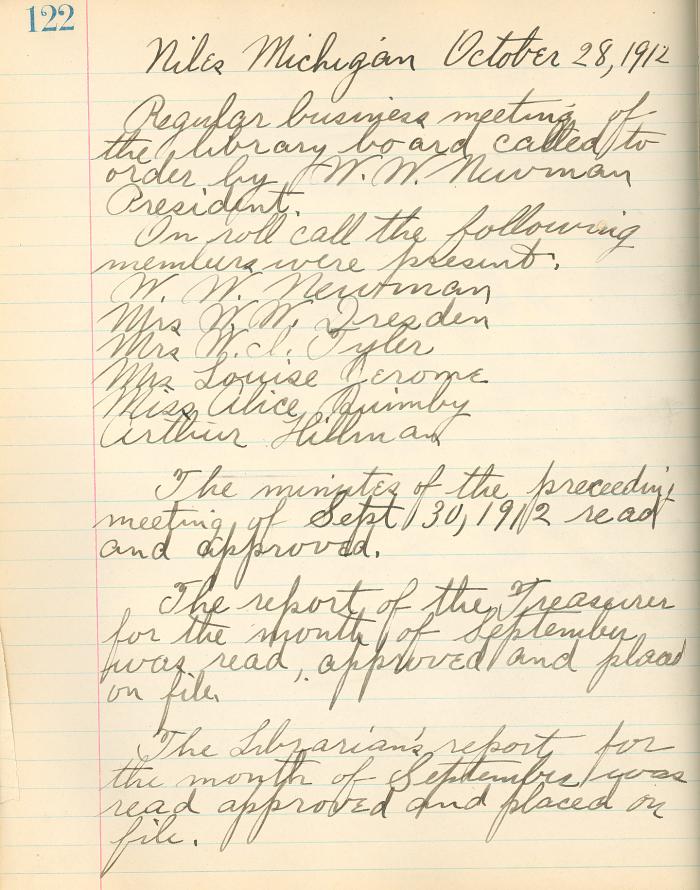 122
Niles Michigan October 28, 1912
Regular business meeting of
the library board called to
order by W. W. Newman
President.
On roll call the following
members were present.
W. W. Newman
Mrs W. W. Dresden
Mrs W. I. Tyler
Mrs Louise Jerome
Miss Alice Quimby
Arthur Hillman
The minutes of the preceeding
meeting of Sept 30, 1912 read
and approved.
The report of the Treasurer
for the month of September
was read, approved and placed
on file.
The Librarian's report for
the month of September was
read approved and placed on
file.